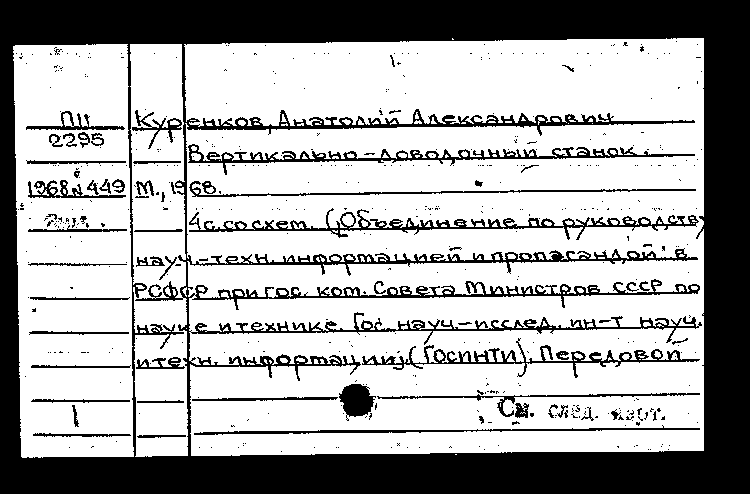 П11 Куренков, Анатолий Александрович
2295 Вертикально-доводочный станок.
1968 № 449 М., 1968.
4с. со схем. (Объединение по руководству
науч.-техн. информацией и пропагандой в
РСФСР при Гос. ком. Совета Министров СССР по
науке и технике. Гос. науч.-исслед. ин-т науч.
и техн. информации) (ГОСИНТИ). Передовой
1 См. след. карт.